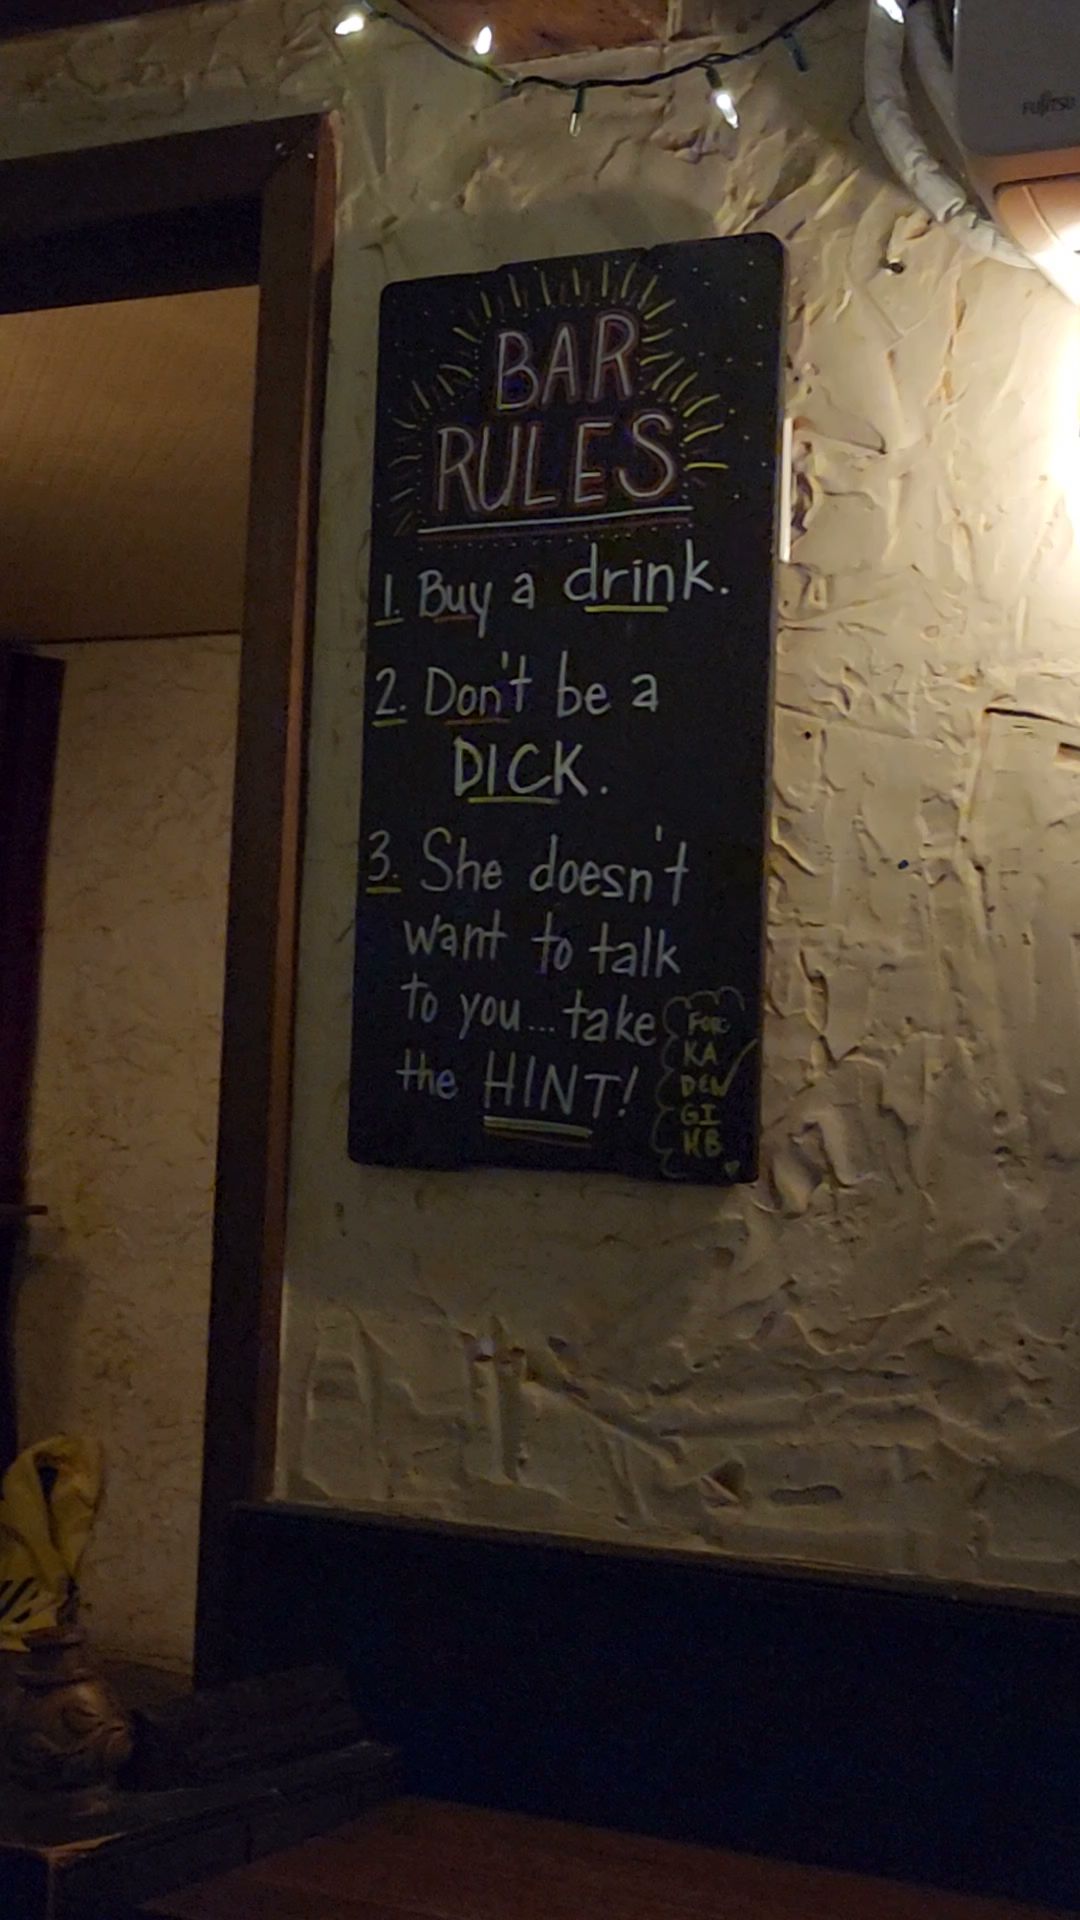 FUJITSU
BAR
RULES
1. Buy a drink.
2. Don't be a
DICK.
3. She doesn't
want to talk
to you... take
the HINT!
FOR
KA
DEN
GI